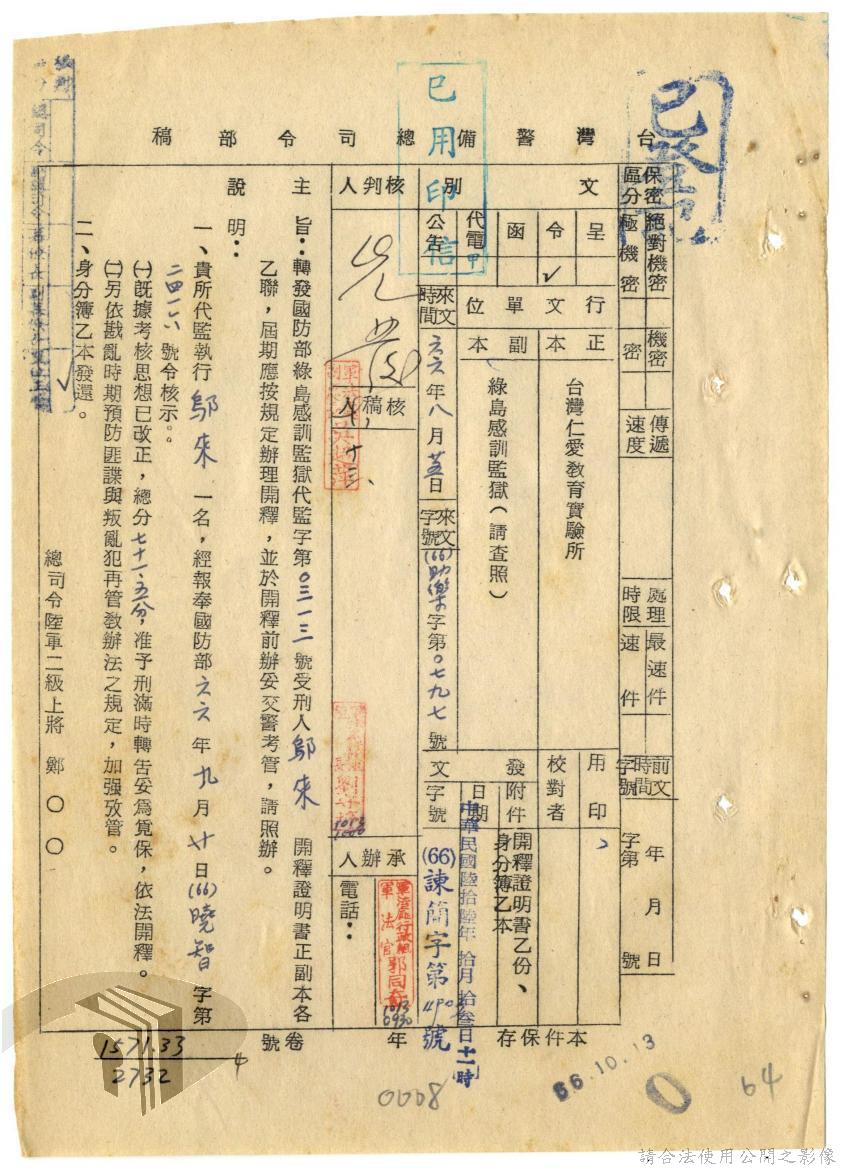 台灣警備總司令部稿
已用印信
保密區分
絕對機密
極機密
機密
密
傳遞速度
處理時限
最速件
速件
前文時間字號
年 月 日
字第 號
文別
呈
令 ✓
函
代電
公告
行文單位
正本
台灣仁愛教育實驗所
副本
綠島感訓監獄(請查照)
用印
校對者
來文時間
六六年八月廿五日
來文字號
(66)助樂字第0七九七號
發文
附件
開釋證明書乙份、
身分簿乙本
日期
中華民國陸拾陸年拾月拾叁日十一時
字號
(66)諫簡字第 號
核判人
核稿人
承辦人
軍法官郭同奇
1013
0930
電話:
主旨:轉發國防部綠島感訓監獄代監字第0三一三號受刑人鄔來 開釋證明書正副本各
乙聯,屆期應按規定辦理開釋,並於開釋前辦妥交警考管,請照辦。
說明:
一、貴所代監執行鄔來一名,經報奉國防部六六年九月廿日(66)曉智字第
二四一六號令核示。
㈠既據考核思想已改正,總分七十一.五分,准予刑滿時轉告妥為覓保,依法開釋。
㈡另依戡亂時期預防匪諜與叛亂犯再管教辦法之規定,加强攷管。
二、身分簿乙本發還。
總司令陸軍二級上將 鄭〇〇
本件保存 年
卷號
1571.33
2732
4
0008
66.10.13
64
請合法使用公開之影像